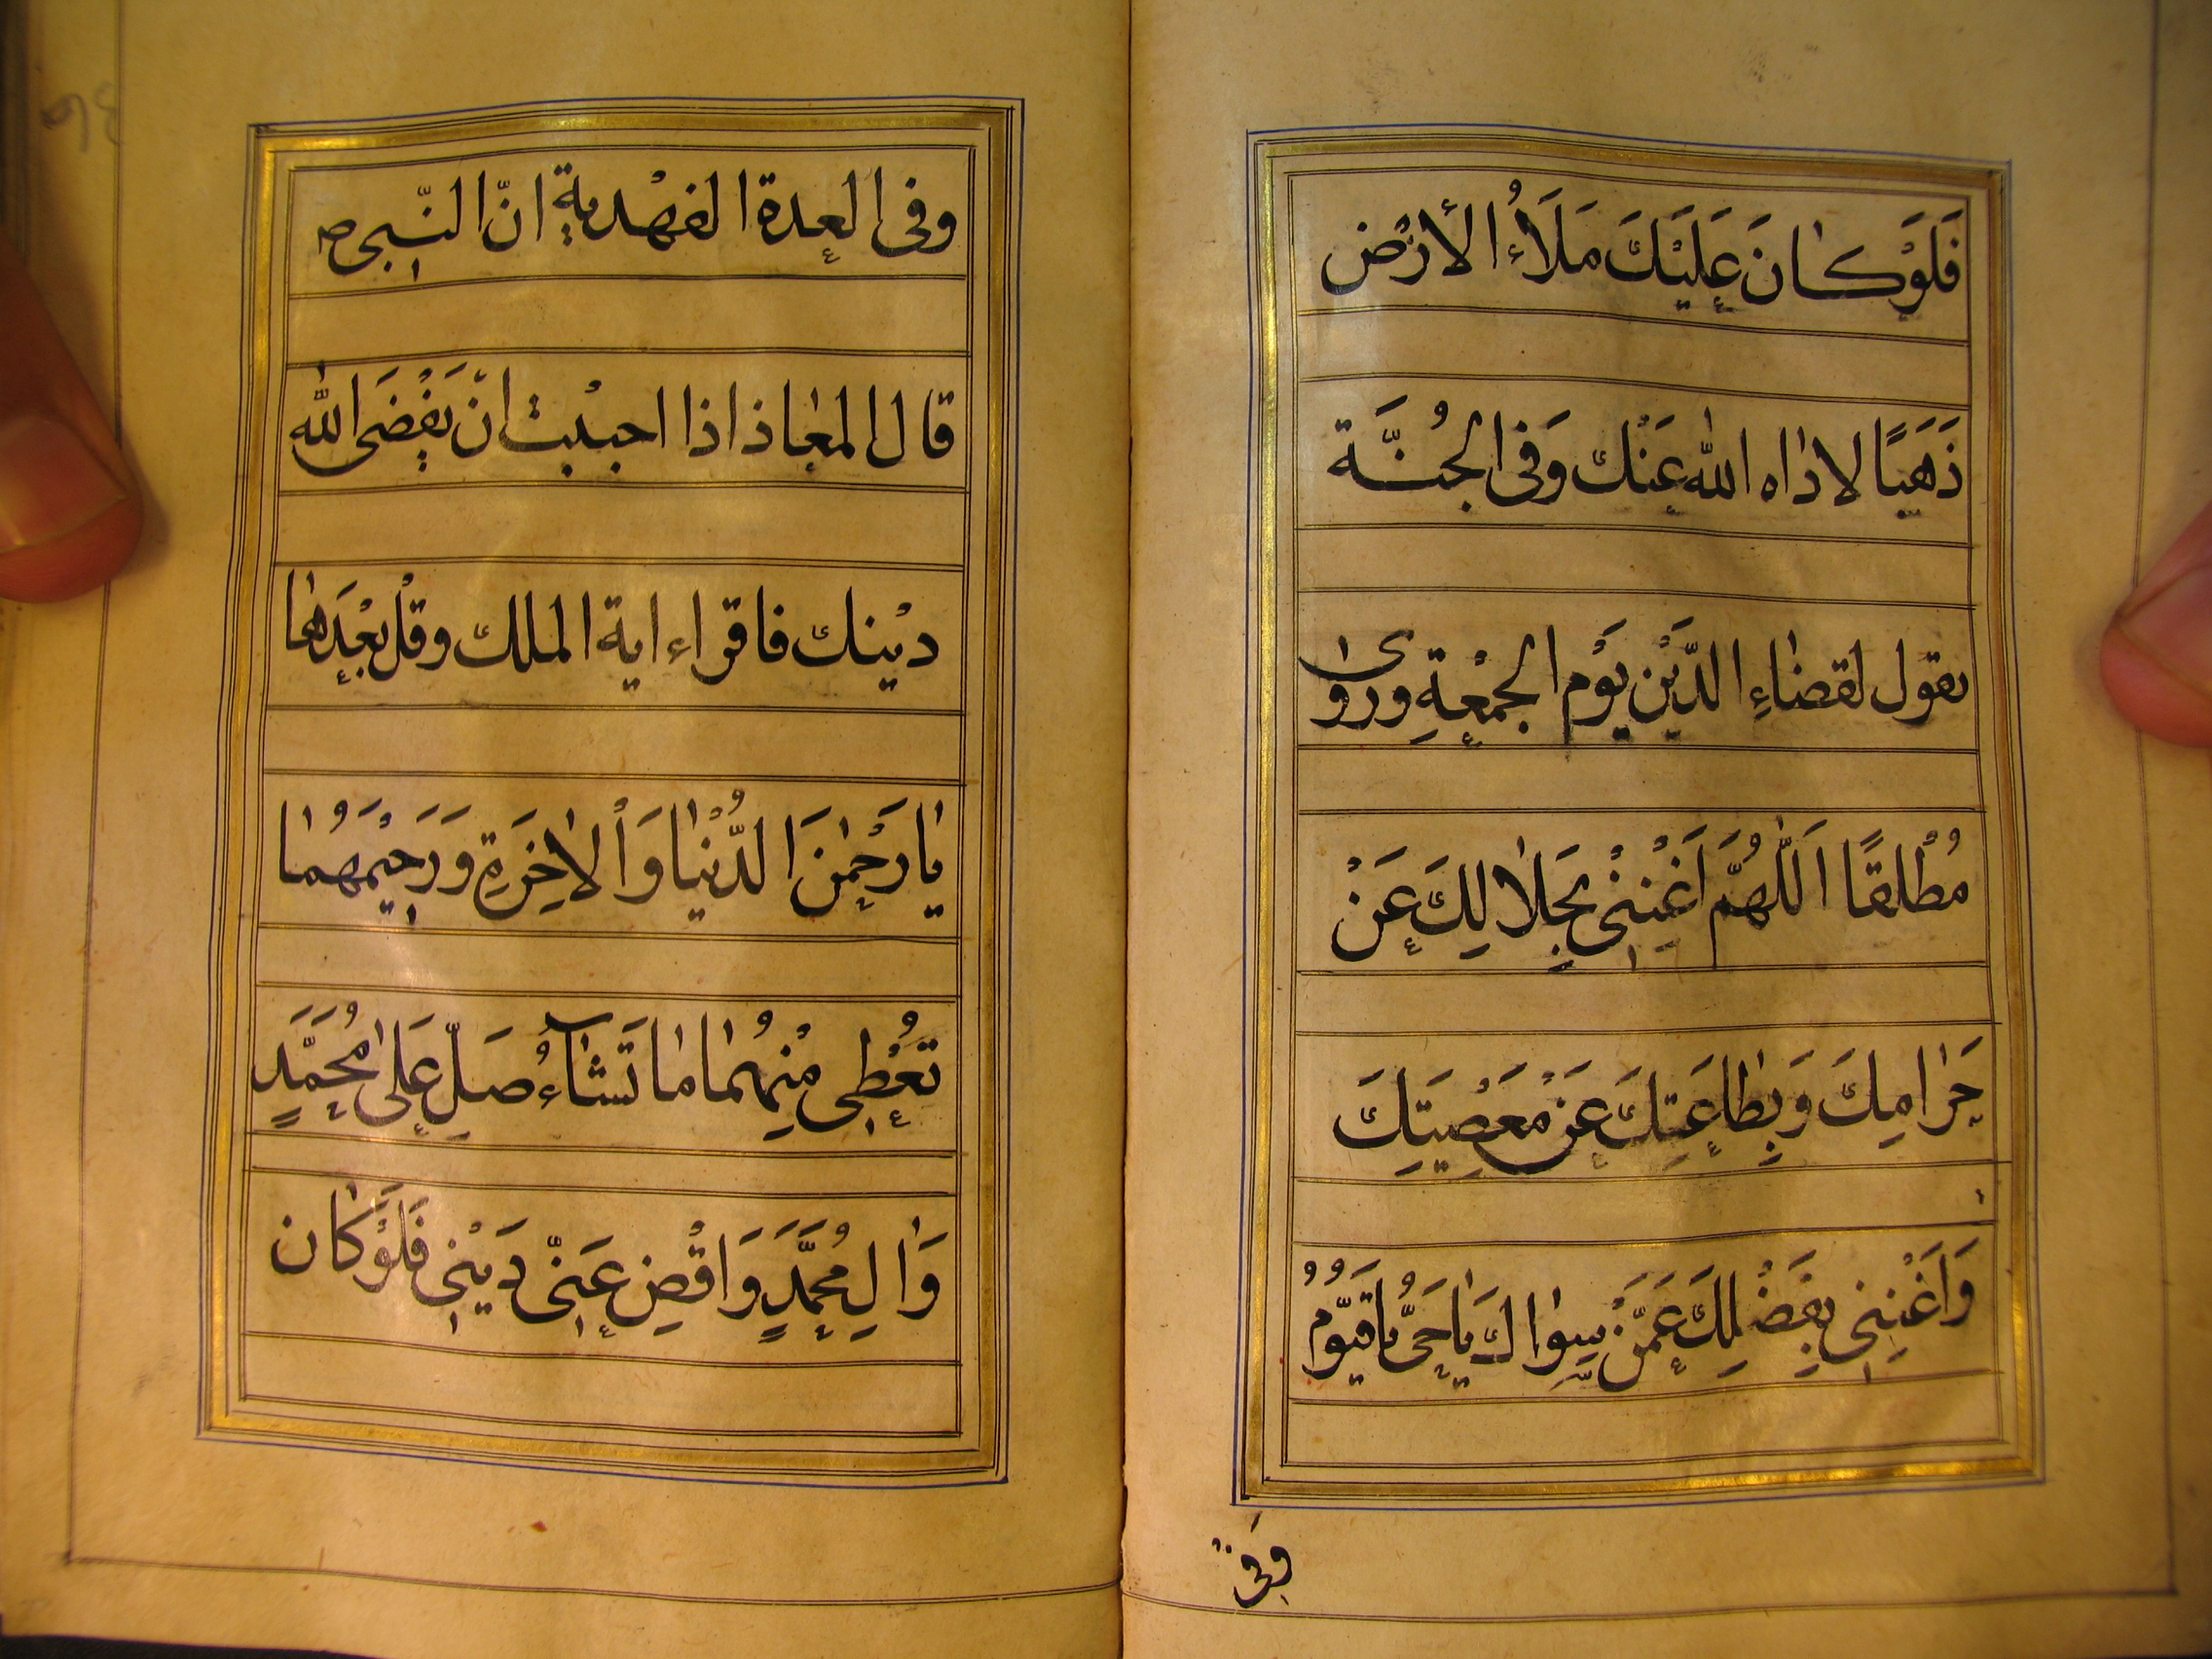 فَلَوْ كانَ عَلَيْكَ مَلَاُءَ الأرْض
ذَهَبًا لاداه اللّٰه عَنْك وَفى الجُنَّة
يقول لقضاءِ الدَّيْن يَوْم الجمْعةِ وروى
مُطْلقًا اَللّٰهُمَّ اَغْنِنْى بِحَلالِكَ عَنْ
حَرامِكَ وَبِطاعَتِكَ عَنْ مَعْصِيَتِكَ
وَاَغْنِنِى بِفَضْلِكَ عَمَّنْ سِواكَ يا حَىُّ يا قَيّوُمُ
وفى
وفى العدة الفهْدية انّ النّبى ص
قال لمعاذ اذا احببْت انْ يَقْضَى اللّٰه
ديْنك فاقراء اية الملك وقلْ بعْدَها
يا رَحْمٰنَ الدُّنْيا وَاْلاخِرَةِ وَرَحيْمَهُما
تُعْطِى مِنْهُما ما تَشآءُ صَلِّ عَلى مُحَمَّدٍ
وَالِ مُحَمَّدٍ وَاقْضِ عَنّى دَيْنِى فَلَوْ كان